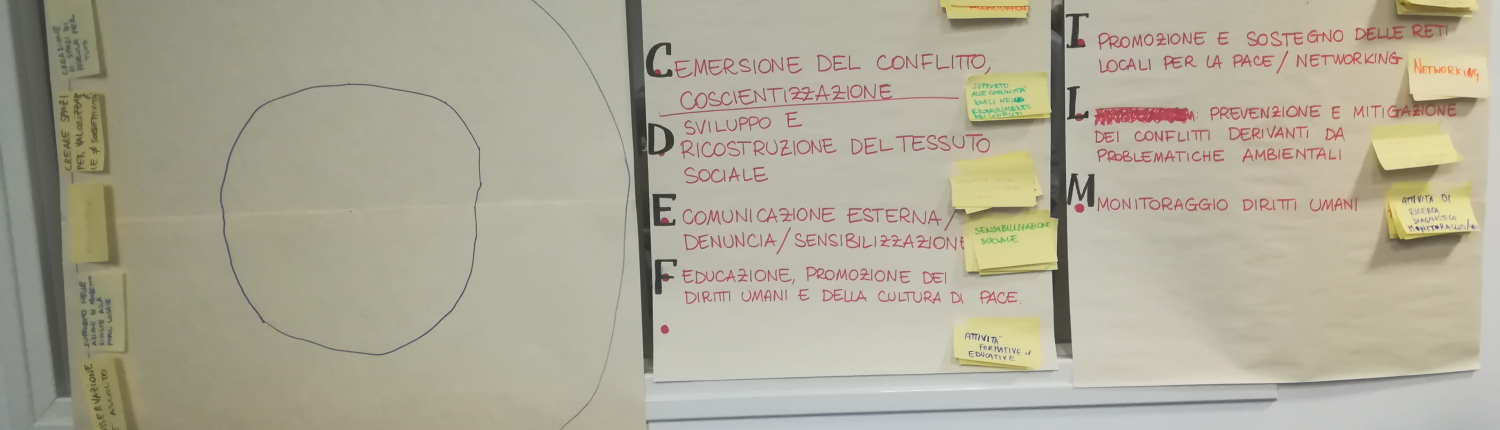 CREARE SPAZI
PER VALORIZZARE
LE ≠ SOGGETTIVITÀ
OSSERVAZIONE
ASCOLTO
C
EMERSIONE DEL CONFLITTO,
COSCIENTIZZAZIONE
SUPPORTO
ALLE COMUNITÀ
LOCALI
D
SVILUPPO E
RICOSTRUZIONE DEL TESSUTO
SOCIALE
E
COMUNICAZIONE ESTERNA/
DENUNCIA/SENSIBILIZZAZIONE
SENSIBILIZZAZIONE
SOCIALE
F
EDUCAZIONE, PROMOZIONE DEI
DIRITTI UMANI E DELLA CULTURA DI PACE.
ATTIVITÀ
FORMATIVE
EDUCATIVE
I
PROMOZIONE E SOSTEGNO DELLE RETI
LOCALI PER LA PACE/NETWORKING
NETWORKING
L
: PREVENZIONE E MITIGAZIONE
DEI CONFLITTI DERIVANTI DA
PROBLEMATICHE AMBIENTALI
M
MONITORAGGIO DIRITTI UMANI
ATTIVITÀ DI
RICERCA
DIAGNOSTICO
MONITORAGGIO